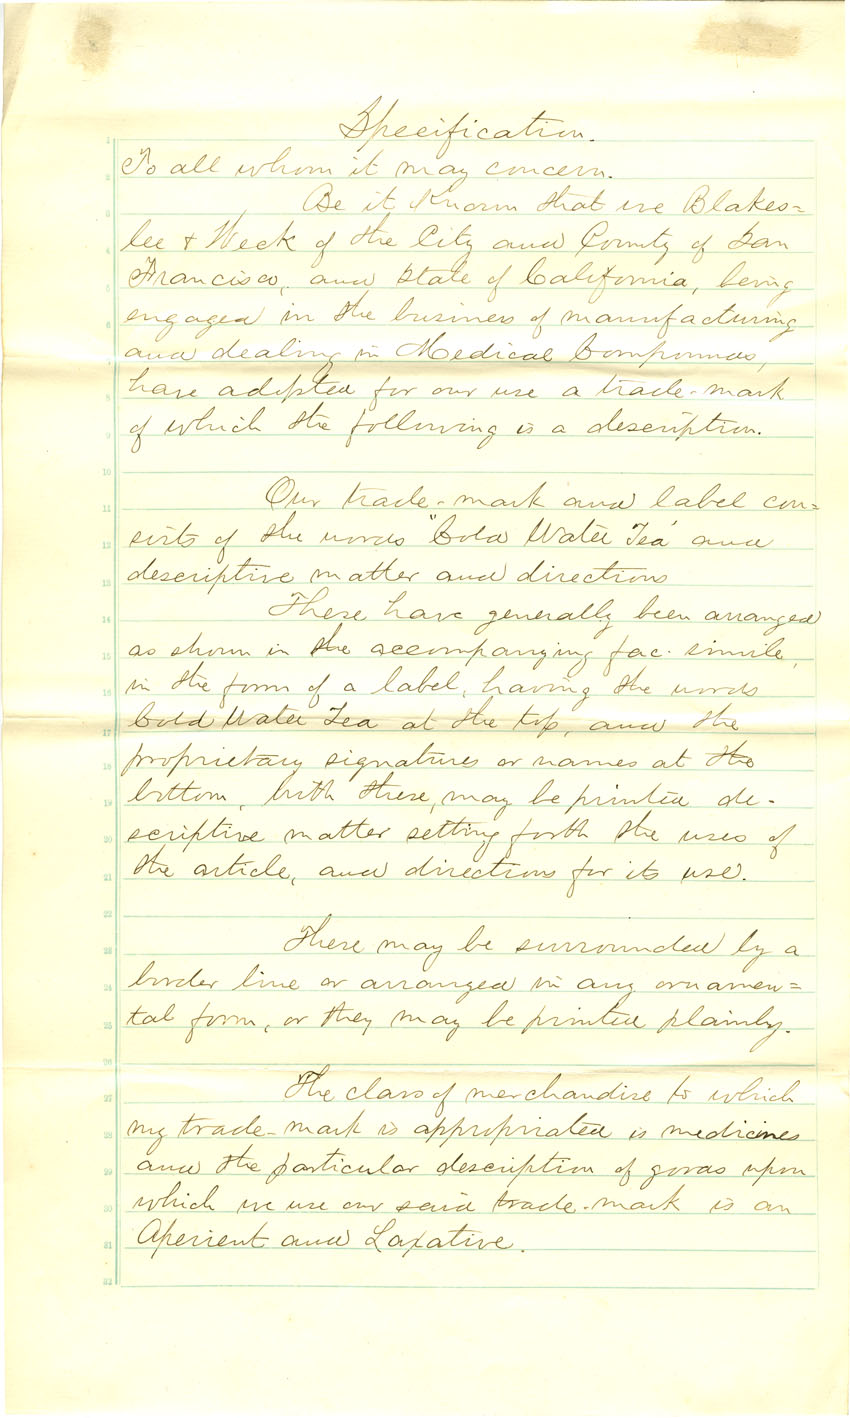 Specification.
To all whom it may concern.
Be it Known that we Blakes=
lee & Weck of the City and County of San
Francisco, and State of California, being
engaged in the business of manufacturing
and dealing in Medical Compounds,
have adopted for our use a trade-mark
of which the following is a description.
Our trade-mark and label con=
sists of the words "Cold Water Tea" and
descriptive matter and directions
These have generally been arranged
as shown in the accompanying fac-simile,
in the form of a label, having the words
Cold Water Tea at the top, and the
proprietary signatures or names at the
bottom, with these, may be printed de-
scriptive matter setting forth the uses of
the article, and directions for its use.
These may be surrounded by a
border line or arranged in any ornamen=
tal form, or they may be printed plainly.
The class of merchandise to which
my trade-mark is appropriated is medicines
and the particular description of goods upon
which we use our said trade-mark is an
Aperient and Laxative.
1
2
3
4
5
6
7
8
9
10
11
12
13
14
15
16
17
18
19
20
21
22
23
24
25
26
27
28
29
30
31
32